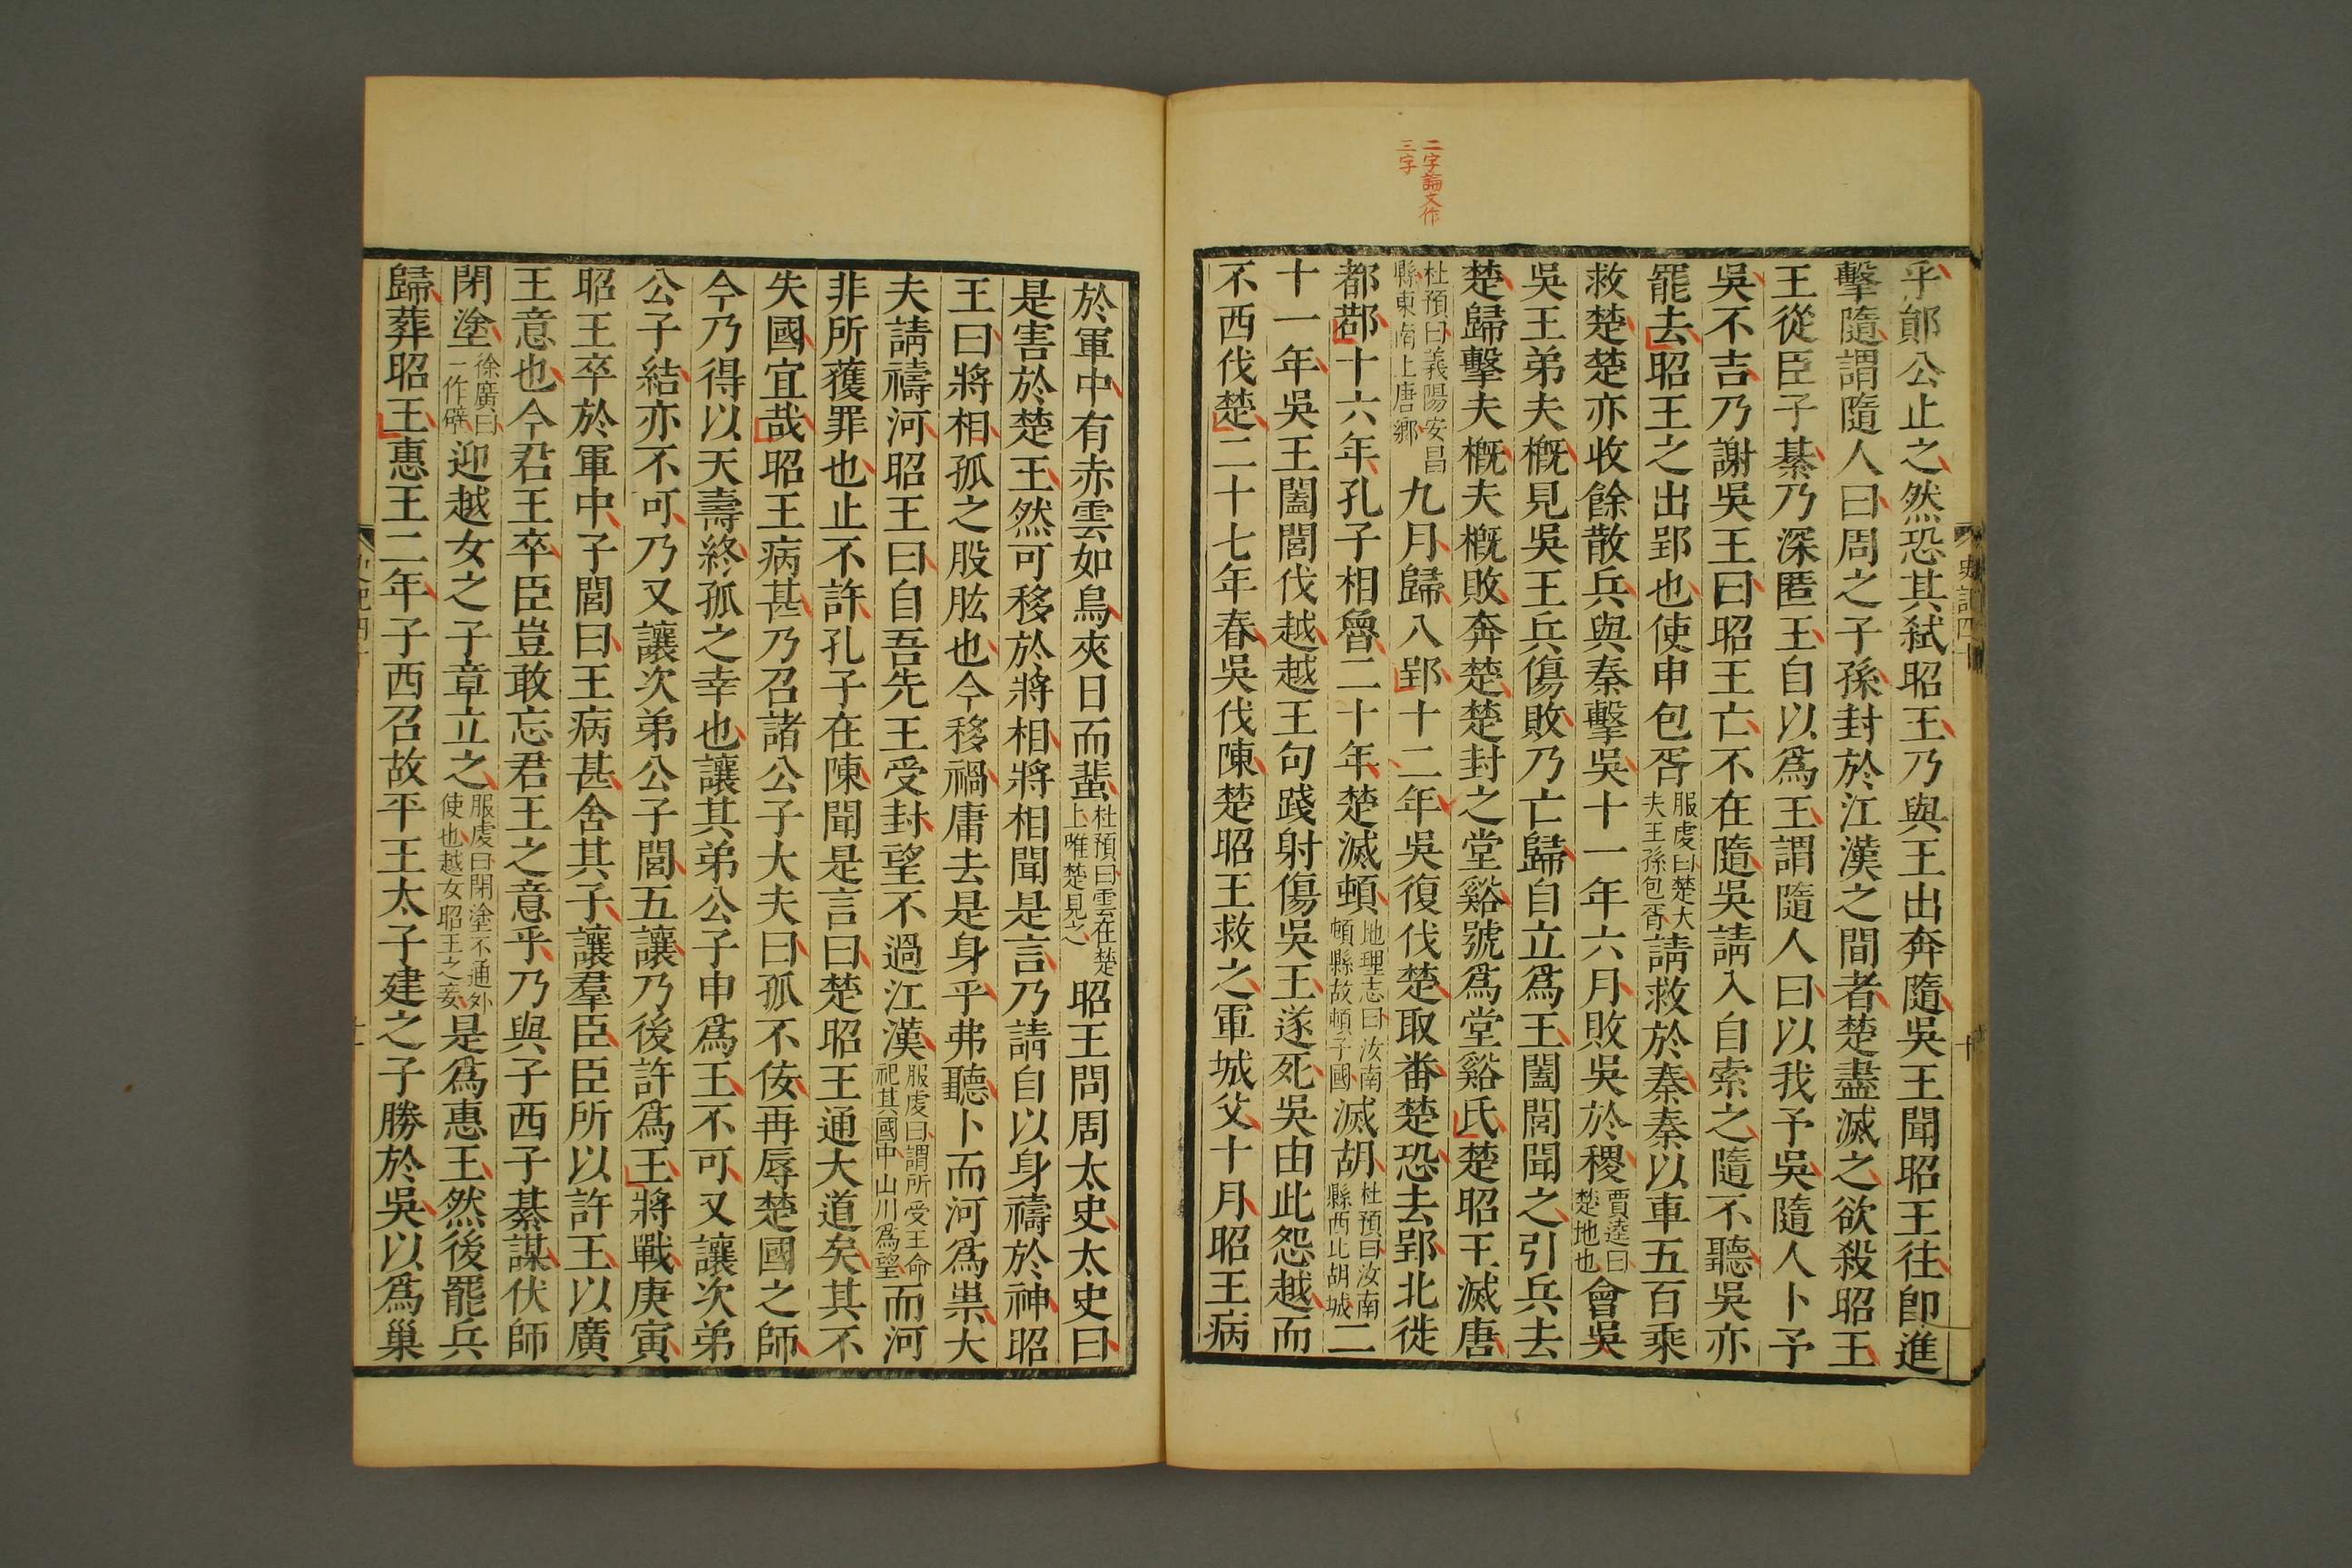 二字論文作
三字
史記四十
十
乎鄖公止之然恐其弑昭王乃與王出奔隨吳王聞昭王往卽進
擊隨謂隨人曰周之子孫封於江漢之間者楚盡滅之欲殺昭王
王從臣子綦乃深匿王自以爲王謂隨人曰以我予吳隨人卜予
吳不吉乃謝吳王曰昭王亡不在隨吳請入自索之隨不聽吳亦
罷去昭王之出郢也使申包胥服虔曰楚大夫王孫包胥請救於秦秦以車五百乘
救楚楚亦收餘散兵與秦擊吳十一年六月敗吳於稷賈逵曰楚地也會吳
吳王弟夫槪見吳王兵傷敗乃亡歸自立爲王闔閭聞之引兵去
楚歸擊夫槪夫槪敗奔楚楚封之堂谿號爲堂谿氏楚昭王滅唐
杜預曰義陽安昌縣東南上唐鄉九月歸入郢十二年吳復伐楚取番楚恐去郢北徙
都鄀十六年孔子相魯二十年楚滅頓地理志曰汝南頓縣故頓子國滅胡杜預曰汝南縣西北胡城二
十一年吳王闔閭伐越越王句踐射傷吳王遂死吳由此怨越而
不西伐楚二十七年春吳伐陳楚昭王救之軍城父十月昭王病
於軍中有赤雲如鳥夾日而蜚杜預曰雲在楚上唯楚見之昭王問周太史太史曰
是害於楚王然可移於將相將相聞是言乃請自以身禱於神昭
王曰將相孤之股肱也今移禍庸去是身乎弗聽卜而河爲祟大
夫請禱河昭王曰自吾先王受封望不過江漢服虔曰謂所受王命祀其國中山川爲望而河
非所獲罪也止不許孔子在陳聞是言曰楚昭王通大道矣其不
失國宜哉昭王病甚乃召諸公子大夫曰孤不佞再辱楚國之師
今乃得以天壽終孤之幸也讓其弟公子申爲王不可又讓次弟
公子結亦不可乃又讓次弟公子閭五讓乃後許爲王將戰庚寅
昭王卒於軍中子閭曰王病甚舍其子讓羣臣臣所以許王以廣
王意也今君王卒臣豈敢忘君王之意乎乃與子西子綦謀伏師
閉塗徐廣曰一作壁迎越女之子章立之服虔曰閉塗不通外使也越女昭王之妾是爲惠王然後罷兵
歸葬昭王惠王二年子西召故平王太子建之子勝於吳以爲巢